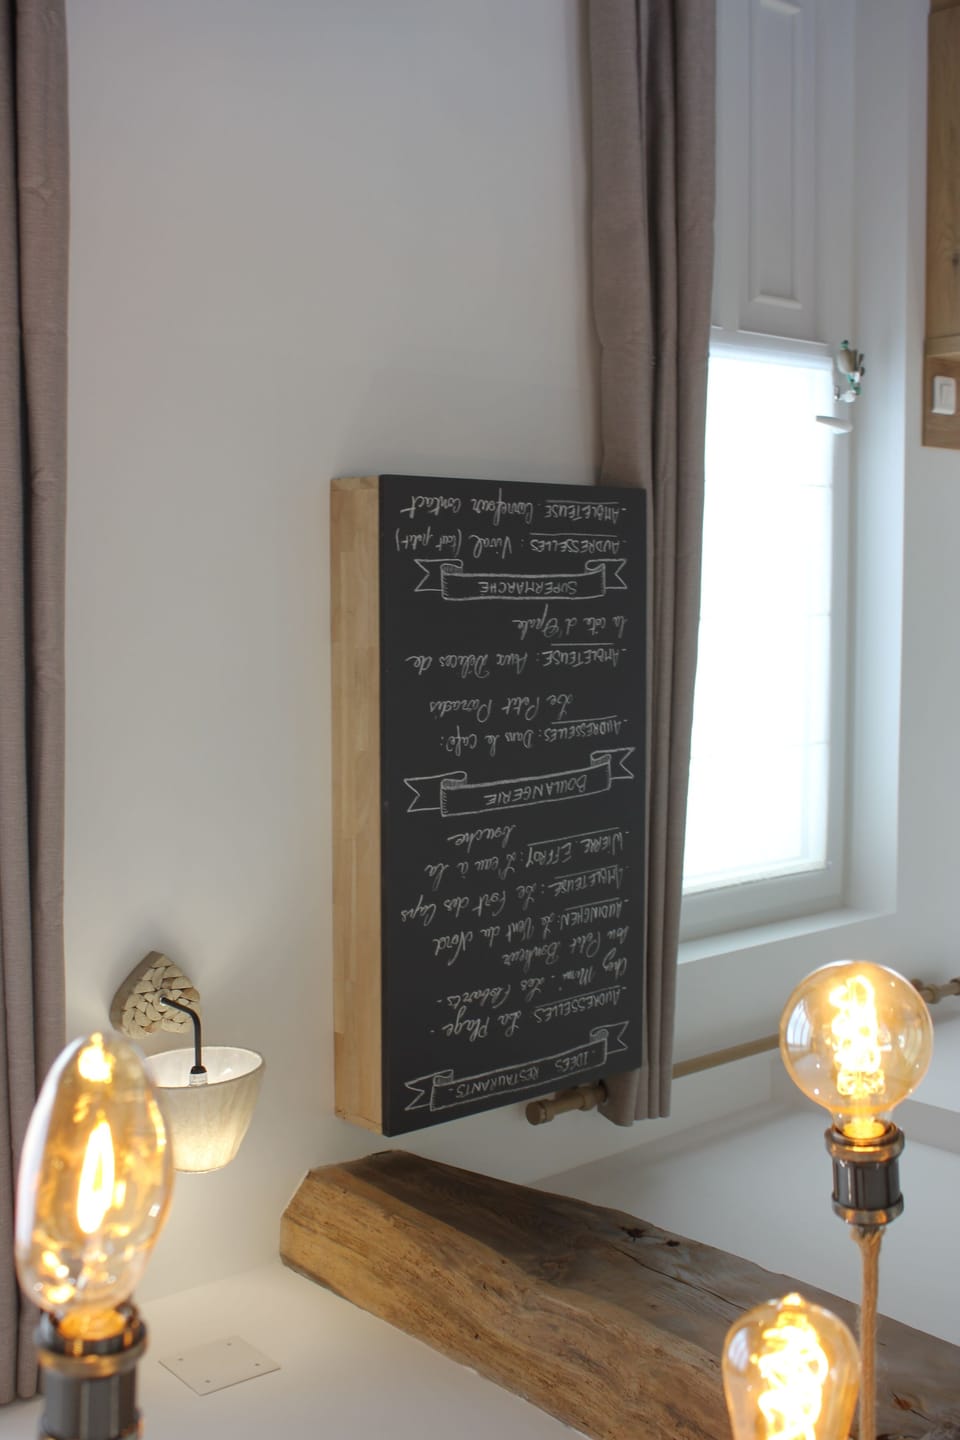 . IDÉES RESTAURANTS .
- AUDRESSELLES La Plage -
Chez Mimi - Les
au Petit Bonheur
- AUDINGHEN : Le Vent du Nord
- AMBLETEUSE : Le Fort des Caps
- WIERRE EFFROY : L'eau à la
bouche
BOULANGERIE
- AUDRESSELLES : Dans le café :
Le Petit Paradis
- AMBLETEUSE : Aux Délices de
la côte d'Opale
SUPERMARCHE
- AUDRESSELLES : Vival (tout petit)
- AMBLETEUSE : Carrefour Contact